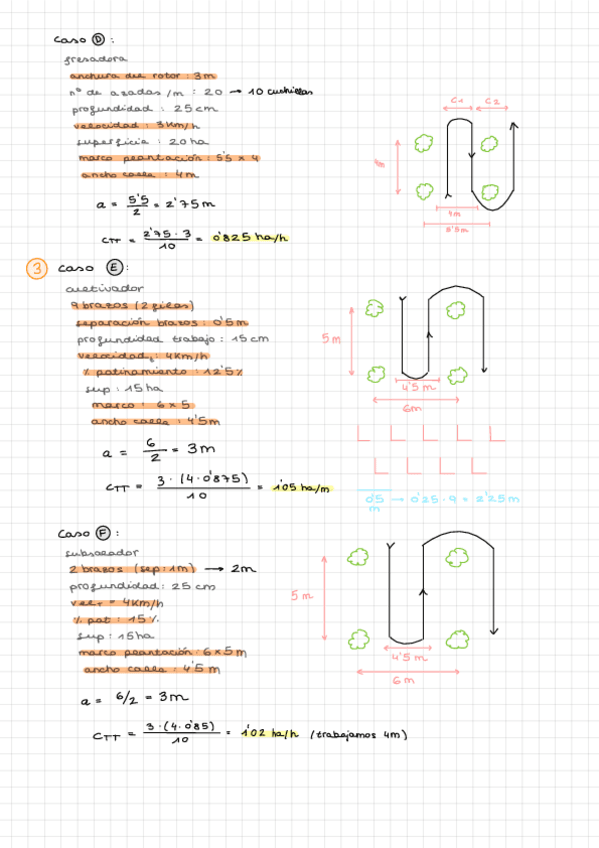 Caso D :
fresadora
anchura del rotor : 3m
nº de azadas /m : 20 → 10 cuchillas
profundidad : 25 cm
velocidad : 3Km/h
superficie : 20 ha
marco plantación : 5'5 x 4
ancho calle : 4m
a = 5'5/2 = 2'75 m
CTT = 2'75 · 3/10 = 0'825 ha/h
C1 C2
4m
4m
5'5m
3 Caso E :
cultivador
9 brazos (2 filas)
separación brazos : 0'5m
profundidad trabajo : 15 cm
velocidad : 4Km/h
% patinamiento : 12'5%
sup : 15 ha
marco : 6 x 5
ancho calle : 4'5m
a = 6/2 = 3m
CTT = 3 · (4 · 0'875)/10 = 1'05 ha/m
5m
4'5 m
6m
0'5 m → 0'25 · 9 = 2'25 m
Caso F :
subsolador
2 brazos (sep : 1m) → 2m
profundidad : 25 cm
vel T = 4Km/h
% pat : 15%
sup : 15 ha
marco plantación : 6 x 5 m
ancho calle : 4'5 m
a = 6/2 = 3m
CTT = 3 · (4 · 0'85)/10 = 1'02 ha/h (trabajamos 4m)
5 m
4'5 m
6 m